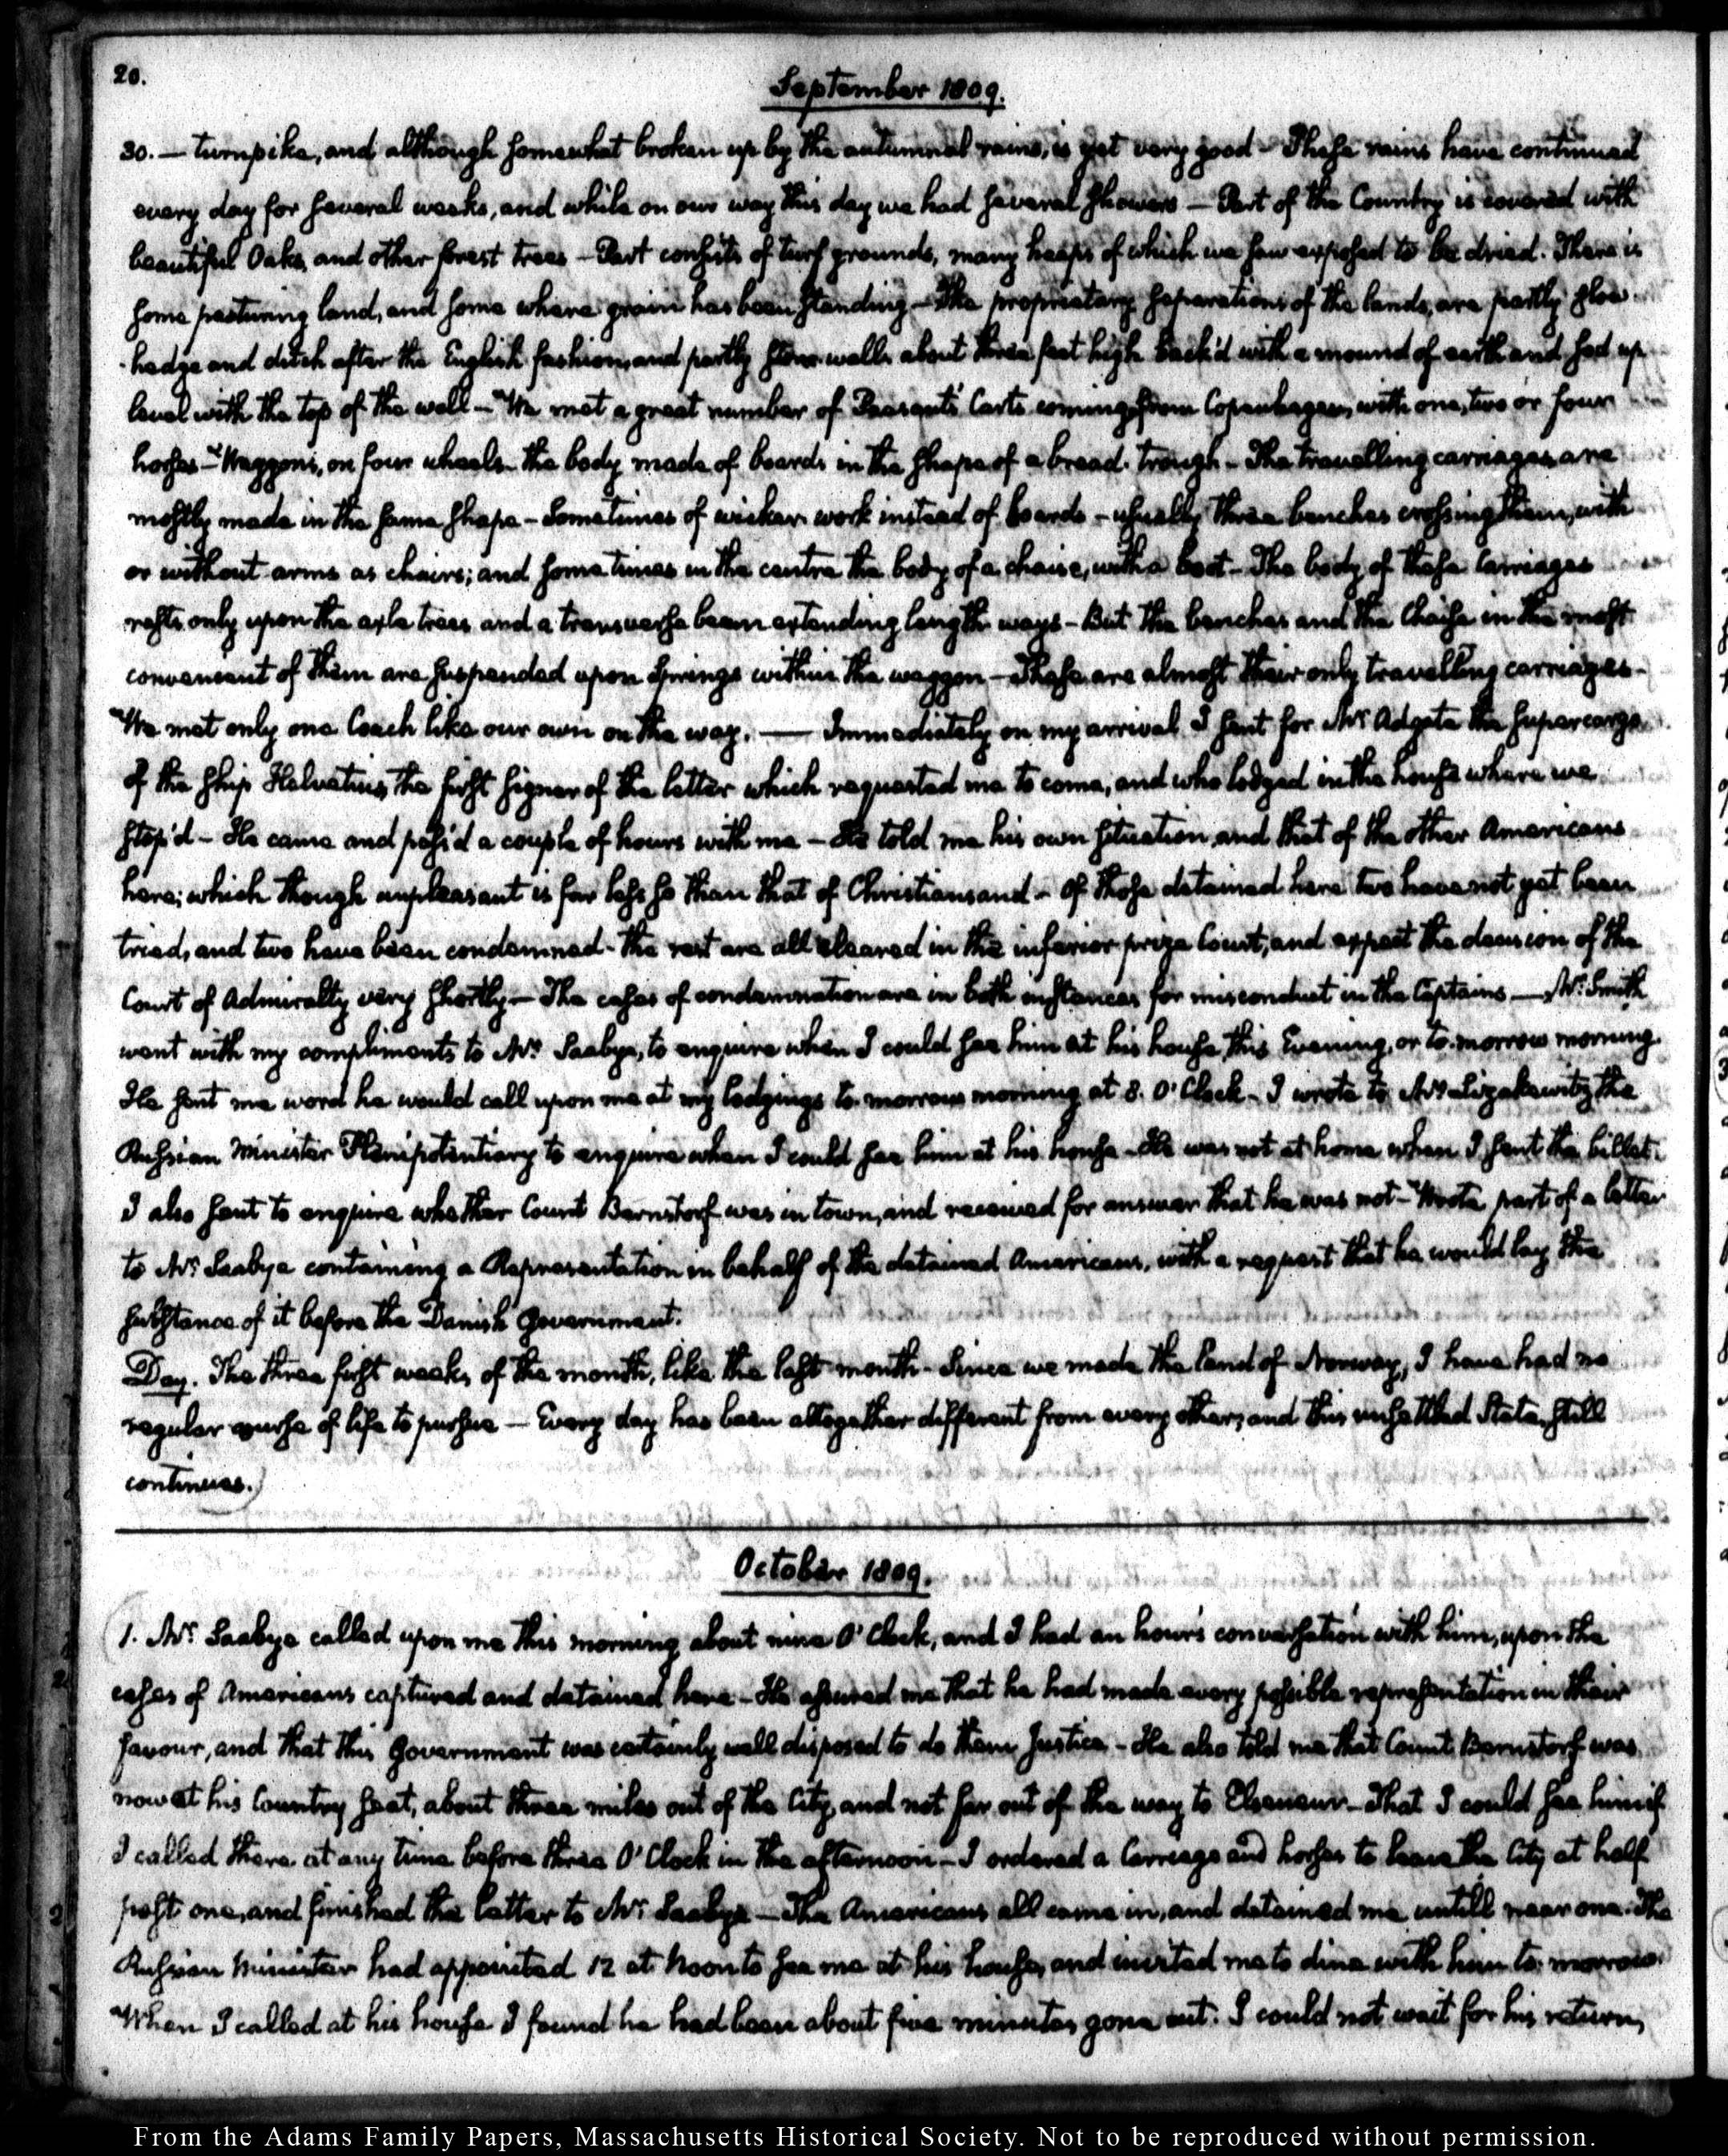 20.
September 1809.
30. — turnpike, and although somewhat broken up by the autumnal rains, is yet very good – These rains have continued
every day for several weeks, and while on our way this day we had several showers – Part of the Country is covered with
beautiful Oaks, and other forest trees – Part consists of turf grounds, many heaps of which we saw exposed to be dried. There is
some pasturing land, and some where grain has been standing – The proprietary separations of the lands, are partly
hedge and ditch after the English fashion, and partly stone-walls about three feet high back'd with a mound of earth and sod up
level with the top of the wall – We met a great number of Peasants' Carts coming from Copenhagen, with one, two or four
horses – Waggons, on four wheels – the body made of boards in the shape of a bread-trough – The travelling carriages are
mostly made in the same shape – Sometimes of wicker-work instead of boards – usually three benches crossing them, with
or without arms as chairs; and sometimes in the centre the body of a chaise, with a boot – The body of these Carriages
rests only upon the axle trees and a transverse beam extending length ways – But the benches and the Chaise in the most
convenient of them are suspended upon springs within the waggon – These are almost their only travelling carriages –
We met only one Coach like our own on the way. — Immediately on my arrival I sent for Mr. Adgate the supercargo
of the ship Helvetius, the first signer of the letter which requested me to come, and who lodged in the house where we
stop'd – He came and pass'd a couple of hours with me – He told me his own situation and that of the other Americans
here; which though unpleasant is far less so than that of Christiansand – Of those detained here two have not yet been
tried, and two have been condemned – the rest are all cleared in the inferior prize Court, and expect the decision of the
Court of Admiralty very shortly – The cases of condemnation are in both instances for misconduct in the Captains — Mr. Smith
went with my compliments to Mr. Saabye, to enquire when I could see him at his house, this Evening, or to-morrow morning.
He sent me word he would call upon me at my lodgings to-morrow morning at 8. O'Clock – I wrote to Mr. Lizakewitz the
Russian Minister Plenipotentiary to enquire when I could see him at his house – He was not at home when I sent the billet.
I also sent to enquire whether Count Bernstorf was in town, and received for answer that he was not – Wrote part of a letter
to Mr. Saabye containing a Representation in behalf of the detained Americans, with a request that he would lay the
substance of it before the Danish Government.
Day. The three first weeks of the month, like the last month – Since we made the land of Norway, I have had no
regular course of life to pursue – Every day has been altogether different from every other, and this unsettled State still
continues.
October 1809.
1. Mr. Saabye called upon me this morning about nine O'Clock, and I had an hour's conversation with him, upon the
cases of Americans captured and detained here – He assured me that he had made every possible representation in their
favour, and that this Government was certainly well disposed to do them Justice – He also told me that Count Bernstorf was
now at his Country seat, about three miles out of the City, and not far out of the way to Elseneur – That I could see him if
I called there at any time before three O'Clock in the afternoon – I ordered a Carriage and horses to leave the City at half
past one, and finished the letter to Mr. Saabye – The Americans all came in, and detained me untill near one. The
Russian Minister had appointed 12 at Noon to see me at his house, and invited me to dine with him to-morrow.
When I called at his house I found he had been about five minutes gone out. I could not wait for his return,
From the Adams Family Papers, Massachusetts Historical Society. Not to be reproduced without permission.